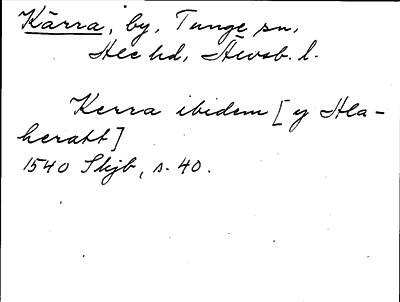 Kärra, by, Tunge sn,
Ale hd, Älvsb. l.
Kerra ibidem [ y Ala-
heratt ]
1540 Skjb, s. 40.